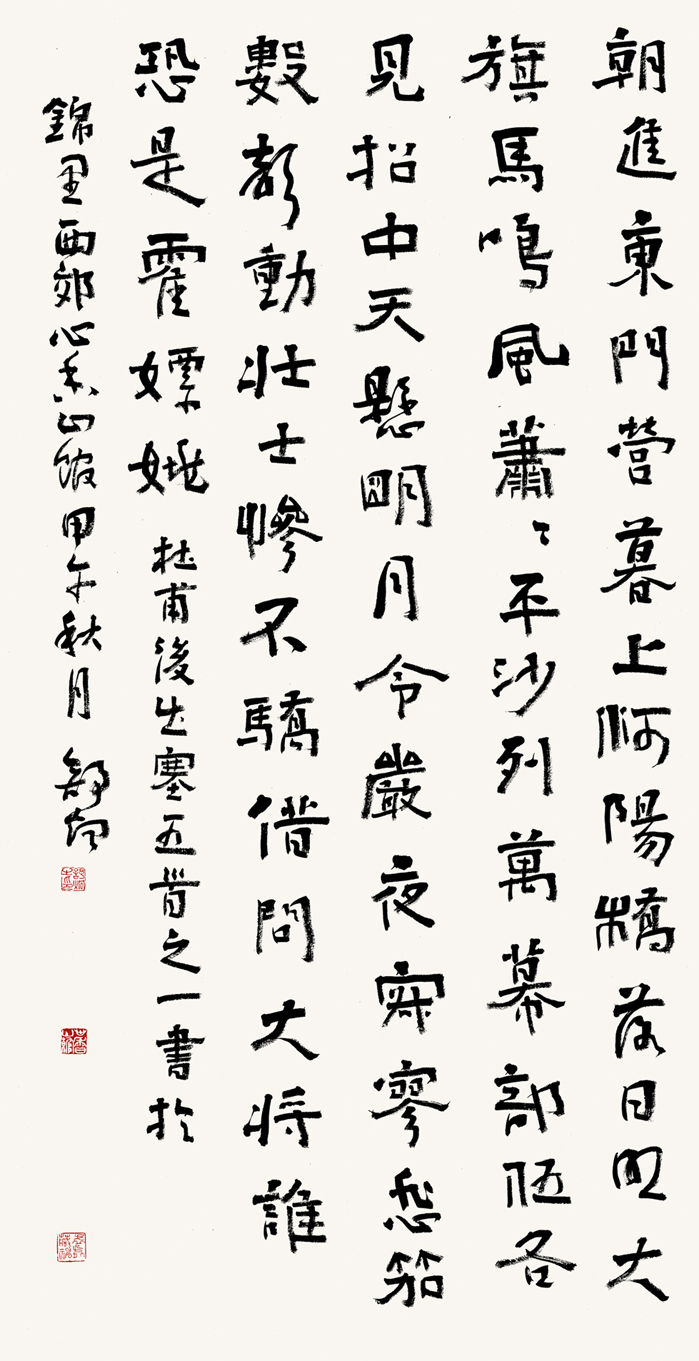 朝進東門營暮上河陽橋落日照大
旗馬鳴風蕭〻平沙列萬幕部伍各
見招中天懸明月令嚴夜寂寥悲笳
數聲動壯士慘不驕借問大將誰
恐是霍嫖姚 杜甫後出塞五首之一書於
錦里西郊心香山館甲午秋月 舒炯